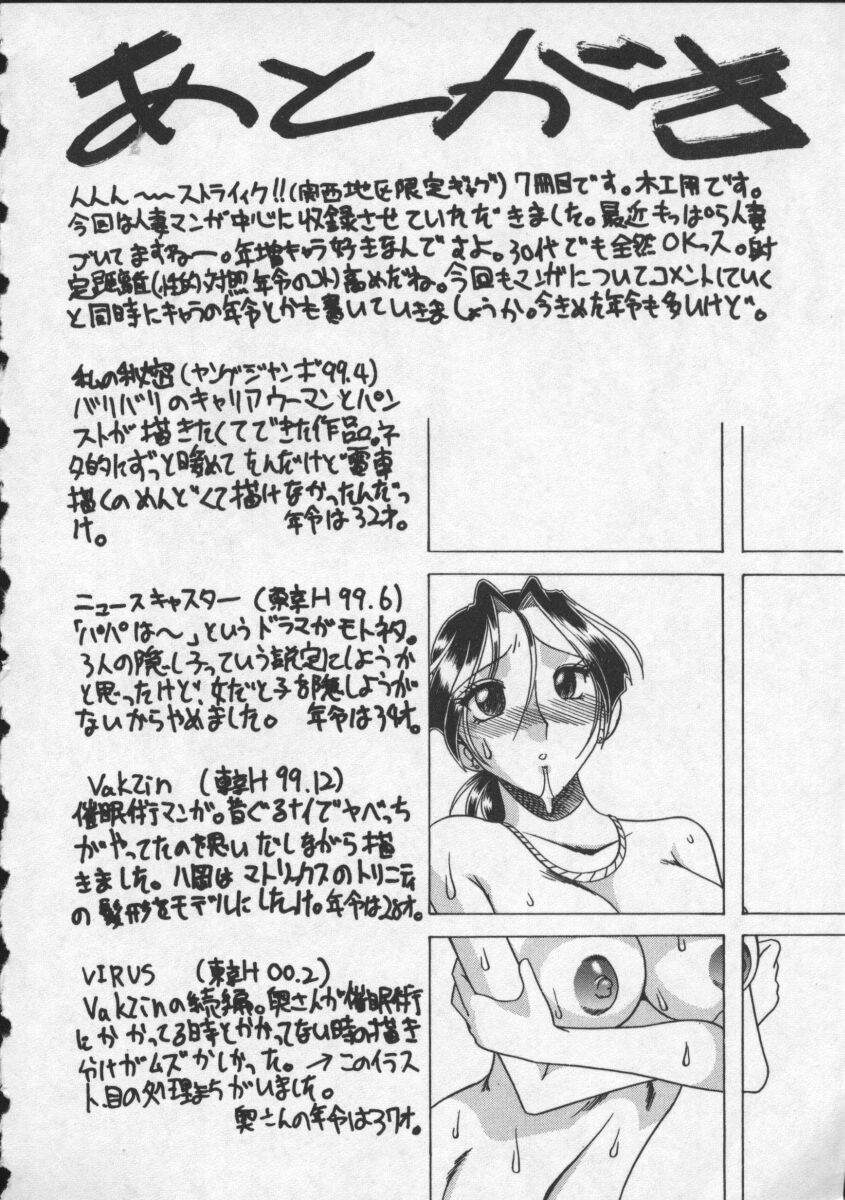 あとがき
んんん〜〜ストライィク!!(関西地区限定ギャグ)7冊目です。木工用です。
今回は人妻マンガ中心に収録させていただきました。最近もっぱら人妻
づいてますねー。年増キャラ好きなんですよ。30代でも全然OKっス。射
定距離(性的対照年令のコト)高めだね。今回もマンガについてコメントしていく
と同時にキャラの年令とかも書いていきましょうか。今きめた年令も多いけど。
私の秘密(ヤングジャンボ99.4)
バリバリのキャリアウーマンとパン
ストが描きたくてできた作品。ネ
タ的にずっと暖めてたんだけど電車
描くのめんどくて描けなかったんだっ
け。 年令は32才。
ニュースキャスター (東幸H 99.6)
「パパは〜」というドラマがモトネタ。
3人の隠し子っていう設定にしようか
と思ったけど、女だと子を隠しようが
ないからやめました。 年令は34才。
VakZin (東幸H 99.12)
催眠術マンガ。昔ぐるナイでヤベっち
がやってたのを思いだしながら描
きました。八岡はマトリックスのトリニティ
の髪形をモデルにしたっけ。年令は28才。
VIRUS (東幸H 00.2)
VakZinの続編。奥さんが催眠術
にかかってる時とかかってない時の描き
分けがムズかしかった。→このイラス
ト、目の処理まちがいました。
奥さんの年令は37才。